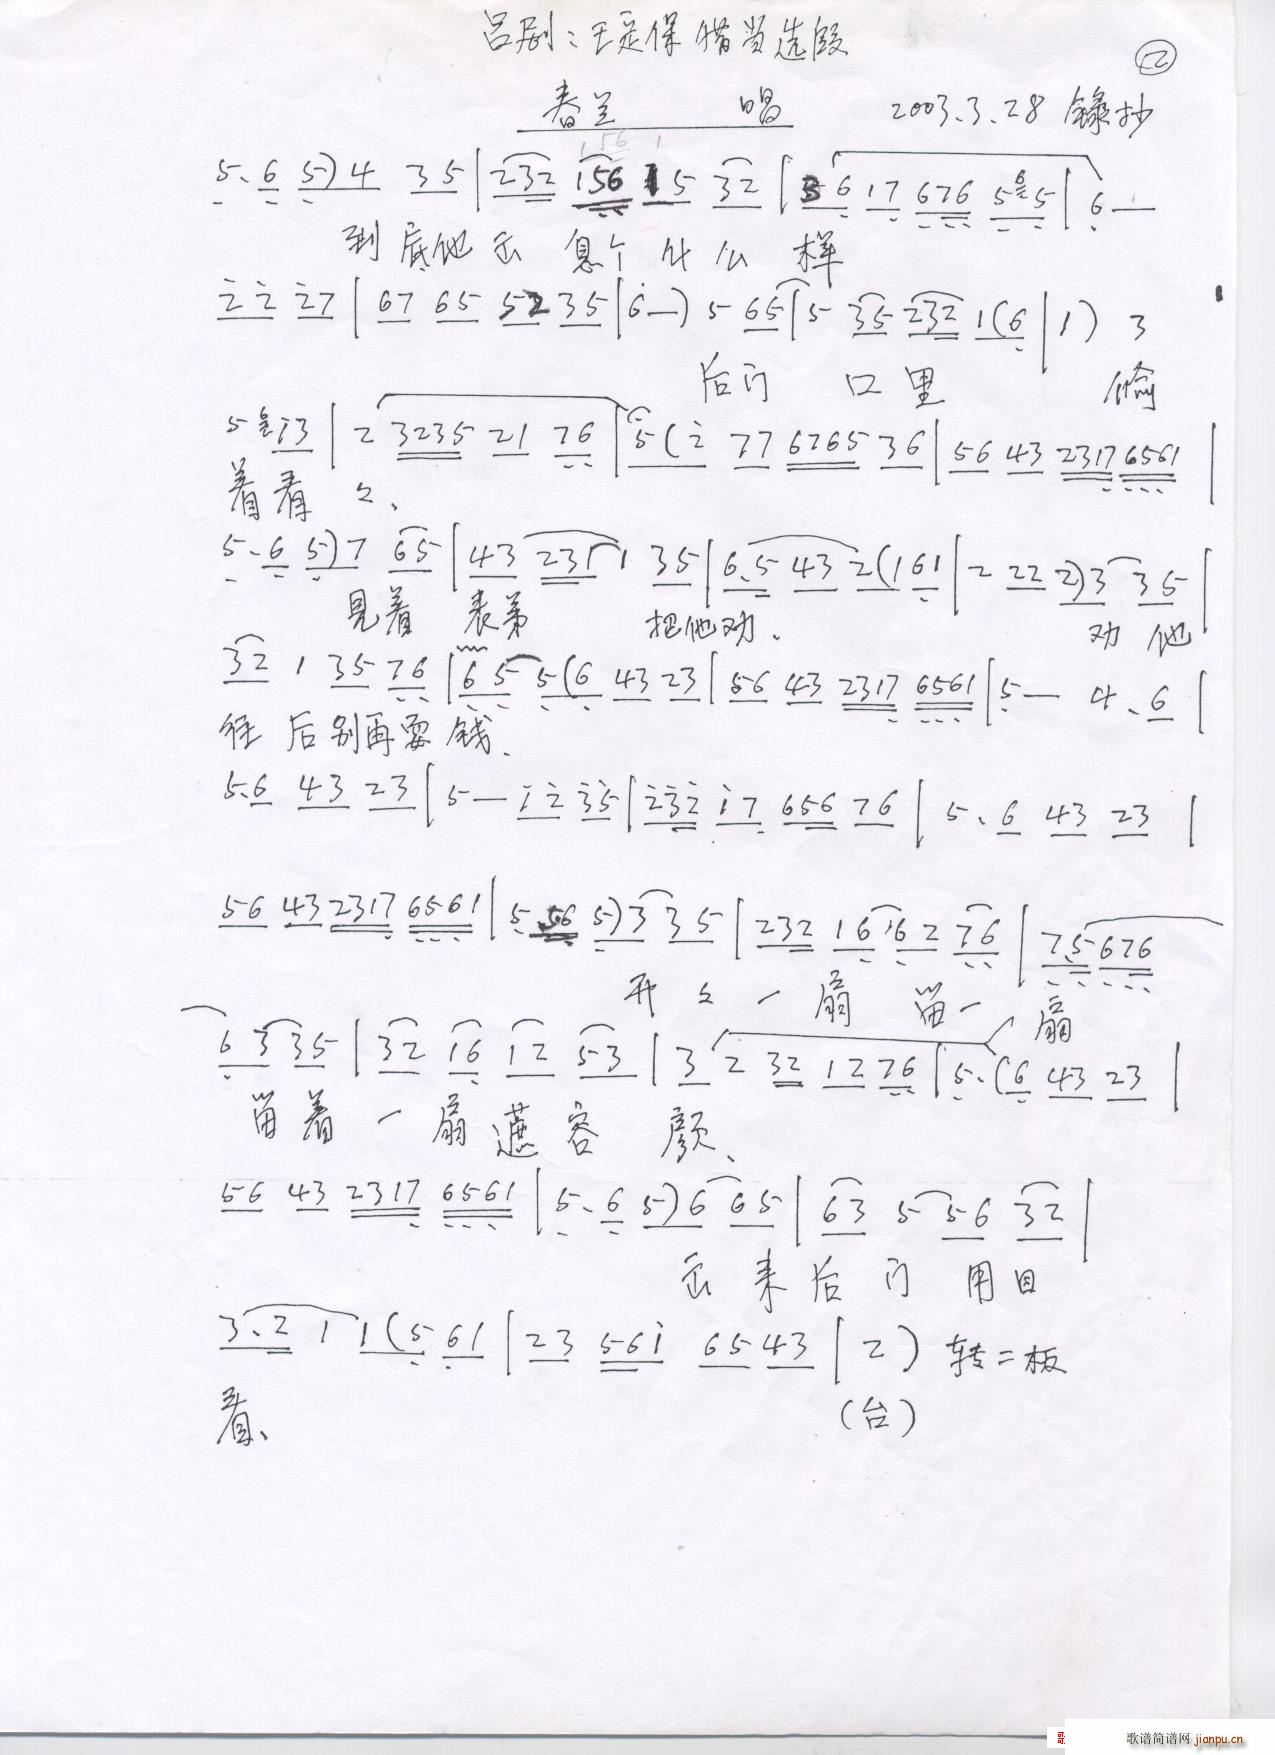 吕剧：王定保借当选段
②
春兰 唱 2003.3.28 錄抄
5. 6 5) 4 35 | 232 156 15 32 | 36 17 676 5 6 5 | 6 —
到底他出息个什么样
2 2 27 | 67 65 52 35 | 6 —) 5 65 | 5 35 232 1(6 | 1) 3
后门 口里 偷
5 6 13 | 2 3235 21 76 | 5 (2 77 6765 36 | 56 43 2317 6561 |
着看々、
5. 6 5) 7 65 | 43 231 1 35 | 6.5 43 2(1 61 | 2 22 2)3 35 |
見着 表弟 把他劝. 劝他
32 1 35 76 | 6 5 5(6 43 23 | 56 43 2317 6561 | 5 — 4. 6 |
往后别再耍钱.
5.6 43 23 | 5 — 12 35 | 232 17 656 76 | 5. 6 43 23 |
56 43 2317 6561 | 5 56 5)3 35 | 232 16 62 76 | 7.5 676
开々一扇 留一扇
6 3 35 | 32 16 12 53 | 3 2 32 12 76 | 5.(6 43 23 |
留着一扇遮容颜、
56 43 2317 6561 | 5. 6 5)6 65 | 63 5 56 32 |
出来后门用目
3.2 1 1(5 61 | 23 561 65 43 | 2) 转二板
看、 (台)
歌谱简谱网 jianpu.cn